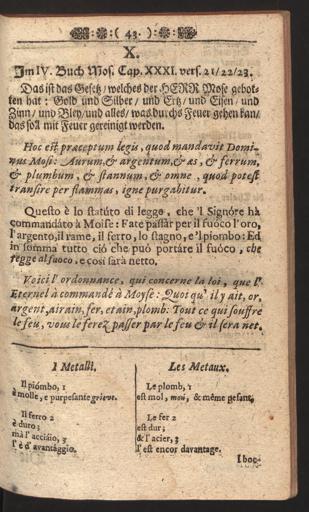 ( 43. )
X.
Im IV. Buch Mos. Cap. XXXI. vers. 21/22/23.
Das ist das Gesetz/ welches der HERR Mose gebot-
ten hat: Gold und Silber/ und Ertz/ und Eisen/ und
Zinn/ und Bley/ und alles/ was durchs Feuer gehen kan/
das soll mit Feuer gereinigt werden.
Hoc est præceptum legis, quod mandavit Domi-
nus Mosi: Aurum, & argentum, & æs, & ferrum,
& plumbum, & stannum, & omne, quod potest
transire per flammas, igne purgabitur.
Questo è lo statúto di legge, che 'l Signóre hà
commandáto à Moise: Fate passár per il fuoco l'oro,
l'argento, il rame, il ferro, lo stagno, e'l piombo: Ed
in somma tutto ciò che può portáre il fuoco, che
regge al fuoco, e così sarà netto.
Voici l'ordonnance, qui concerne la loi, que l'
Eternel à commandé à Moyse: Quoi qu'il y ait, or,
argent, airain, fer, etain, plomb: Tout ce qui souffre
le feu, vous le ferez passer par le feu & il sera net.
I Metalli.
Il piómbo, 1
è molle, e purpesante grieve.
Il ferro 2
è duro;
mà l'acciáio, 3
l'è d'avantággio.
Les Metaux.
Le plomb, 1
est mol, moú, & même pesant,
Le fer 2
est dur;
& l'acier, 3
l'est encor davantage.
I boc-